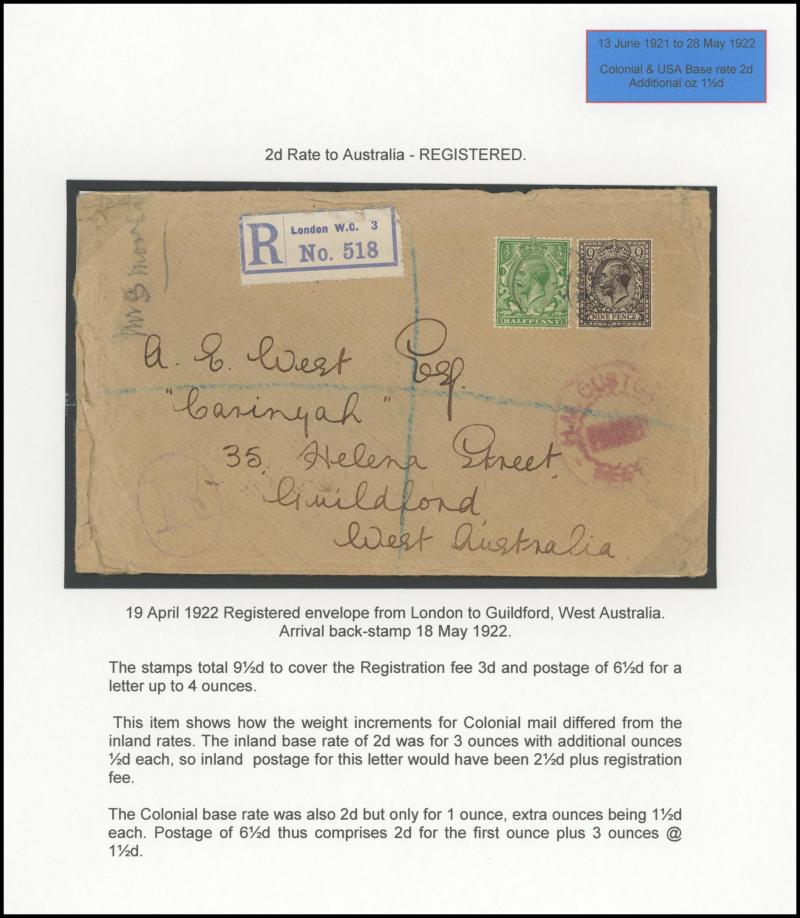 13 June 1921 to 28 May 1922
Colonial & USA Base rate 2d
Additional oz 1½d
2d Rate to Australia - REGISTERED.
R
London W.C. 3
No. 518
HALFPENNY
9 9
NINE PENCE
A. E. West Esq.
"Carinyah"
35, Helena Street,
Guildford,
West Australia.
H.M. CUSTOMS
19 April 1922 Registered envelope from London to Guildford, West Australia.
Arrival back-stamp 18 May 1922.
The stamps total 9½d to cover the Registration fee 3d and postage of 6½d for a
letter up to 4 ounces.
This item shows how the weight increments for Colonial mail differed from the
inland rates. The inland base rate of 2d was for 3 ounces with additional ounces
½d each, so inland postage for this letter would have been 2½d plus registration
fee.
The Colonial base rate was also 2d but only for 1 ounce, extra ounces being 1½d
each. Postage of 6½d thus comprises 2d for the first ounce plus 3 ounces @
1½d.